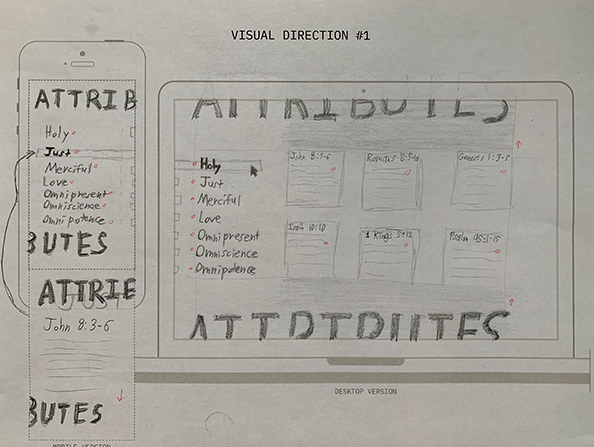 VISUAL DIRECTION #1
ATTRIB
Holy
Just
Merciful
Love
Omnipresent
Omniscience
Omnipotence
BUTES
ATTRIE
JUST
John 8:3-6
BUTES
MOBILE VERSION
ATTRIBUTES
Holy
Just
Merciful
Love
Omnipresent
Omniscience
Omnipotence
Genesis 1:3-5
1 Kings
Psalm 95:1-15
ATTRIBUTES
DESKTOP VERSION